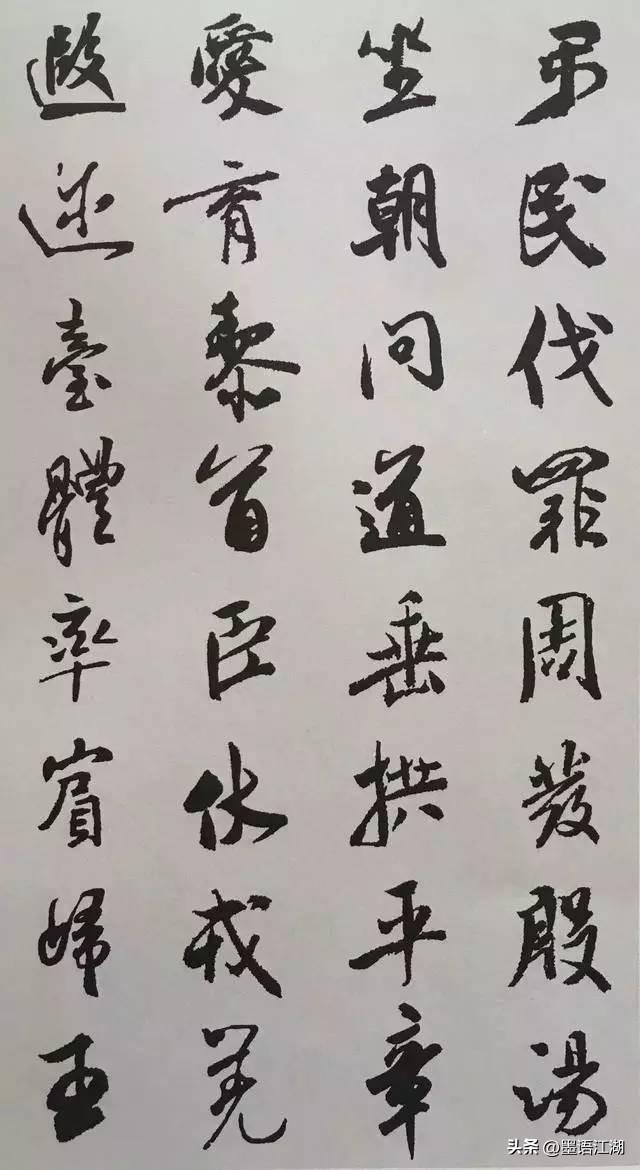 吊民伐罪周發殷湯
坐朝問道垂拱平章
愛育黎首臣伏戎羌
遐迩壹體率賓歸王
头条 @墨语江湖